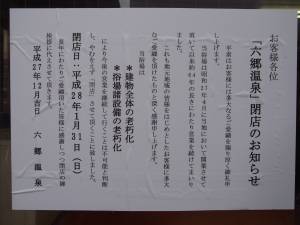 お客様各位
「六郷温泉」閉店のお知らせ
平素はお客様には多大なるご愛顧を賜り厚く御礼申
し上げます。
当浴場は昭和27年4月に当地において開業させて
頂いて以来約64年の長きにわたり営業を続けてまいり
ました。
これも地元地域の皆様をはじめとしたお客様に多大
なご愛顧を頂けたものと深く感謝申し上げます。
当浴場は
＊建物全体の老朽化
＊浴場諸設備の老朽化
により今後の営業を継続して行くことは不可能と判断
し、やむをえず「閉店」させて頂くことに致しました。
閉店日・平成28年1月31日（日）
長年にわたりご愛顧頂いたお客様に感謝しつつ閉店の御
挨拶に代えさせて頂きます。
平成27年12月吉日　六郷温泉